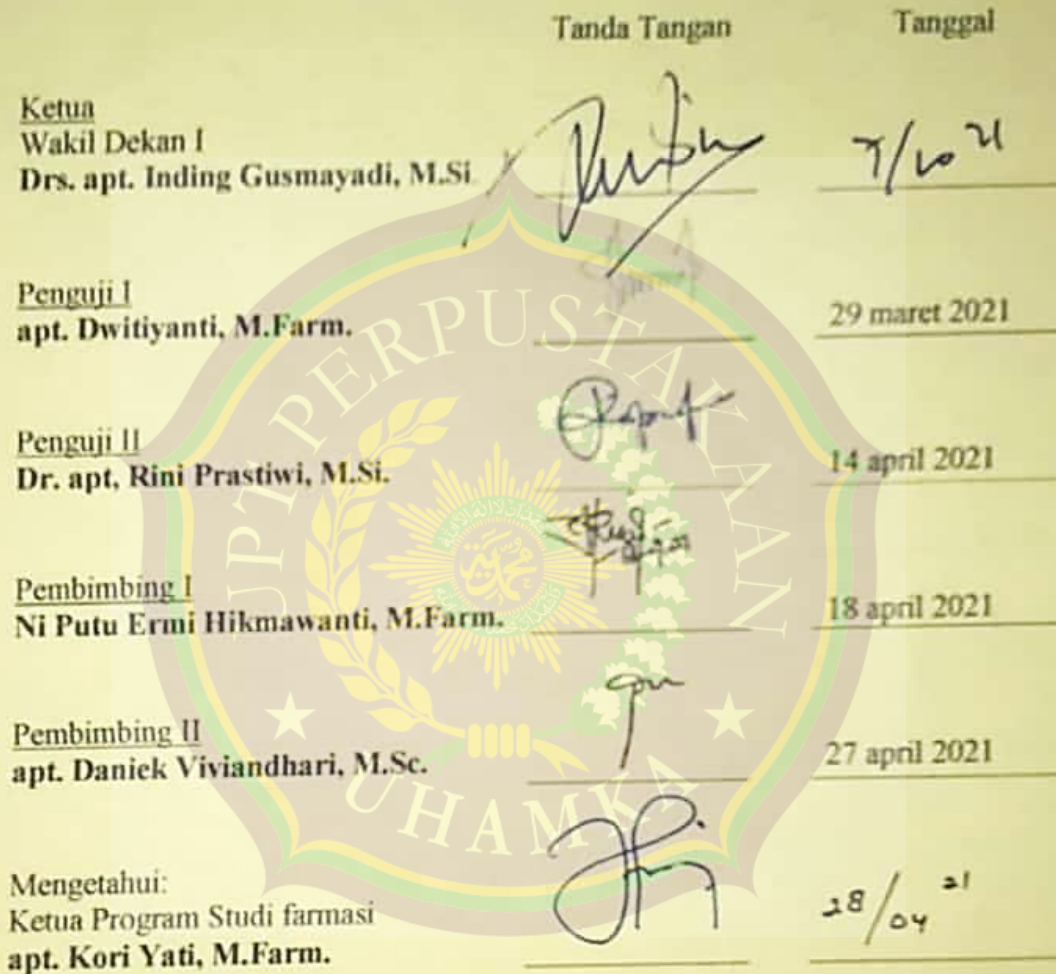 Tanda Tangan Tanggal
Ketua
Wakil Dekan I
Drs. apt. Inding Gusmayadi, M.Si 7/10 21
Penguji I
apt. Dwitiyanti, M.Farm. 29 maret 2021
Penguji II
Dr. apt, Rini Prastiwi, M.Si. 14 april 2021
Pembimbing I
Ni Putu Ermi Hikmawanti, M.Farm. 18 april 2021
Pembimbing II
apt. Daniek Viviandhari, M.Sc. 27 april 2021
Mengetahui:
Ketua Program Studi farmasi
apt. Kori Yati, M.Farm. 28/04 21
UPT PERPUSTAKAAN
UHAMKA